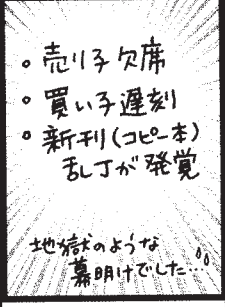 ・売り子欠席
・買い子遅刻
・新刊(コピー本)
乱丁が発覚
地獄のような
幕明けでした…